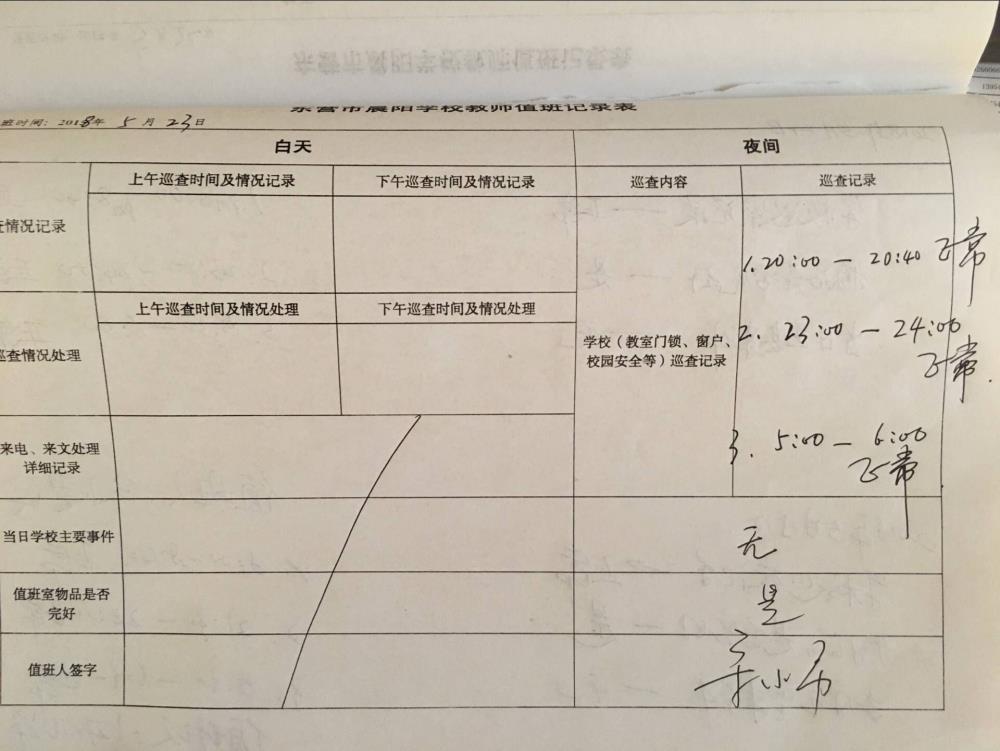 东营市晨阳学校教师值班记录表
班时间：2018年 5 月 23日
白天 夜间
上午巡查时间及情况记录 下午巡查时间及情况记录 巡查内容 巡查记录
查情况记录
1.20:00 — 20:40 正常
上午巡查时间及情况处理 下午巡查时间及情况处理
巡查情况处理
学校（教室门锁、窗户、
校园安全等）巡查记录
2. 23:00 — 24:00
正常
来电、来文处理
详细记录
3. 5:00 — 6:00
正常
当日学校主要事件 无
值班室物品是否
完好
是
值班人签字